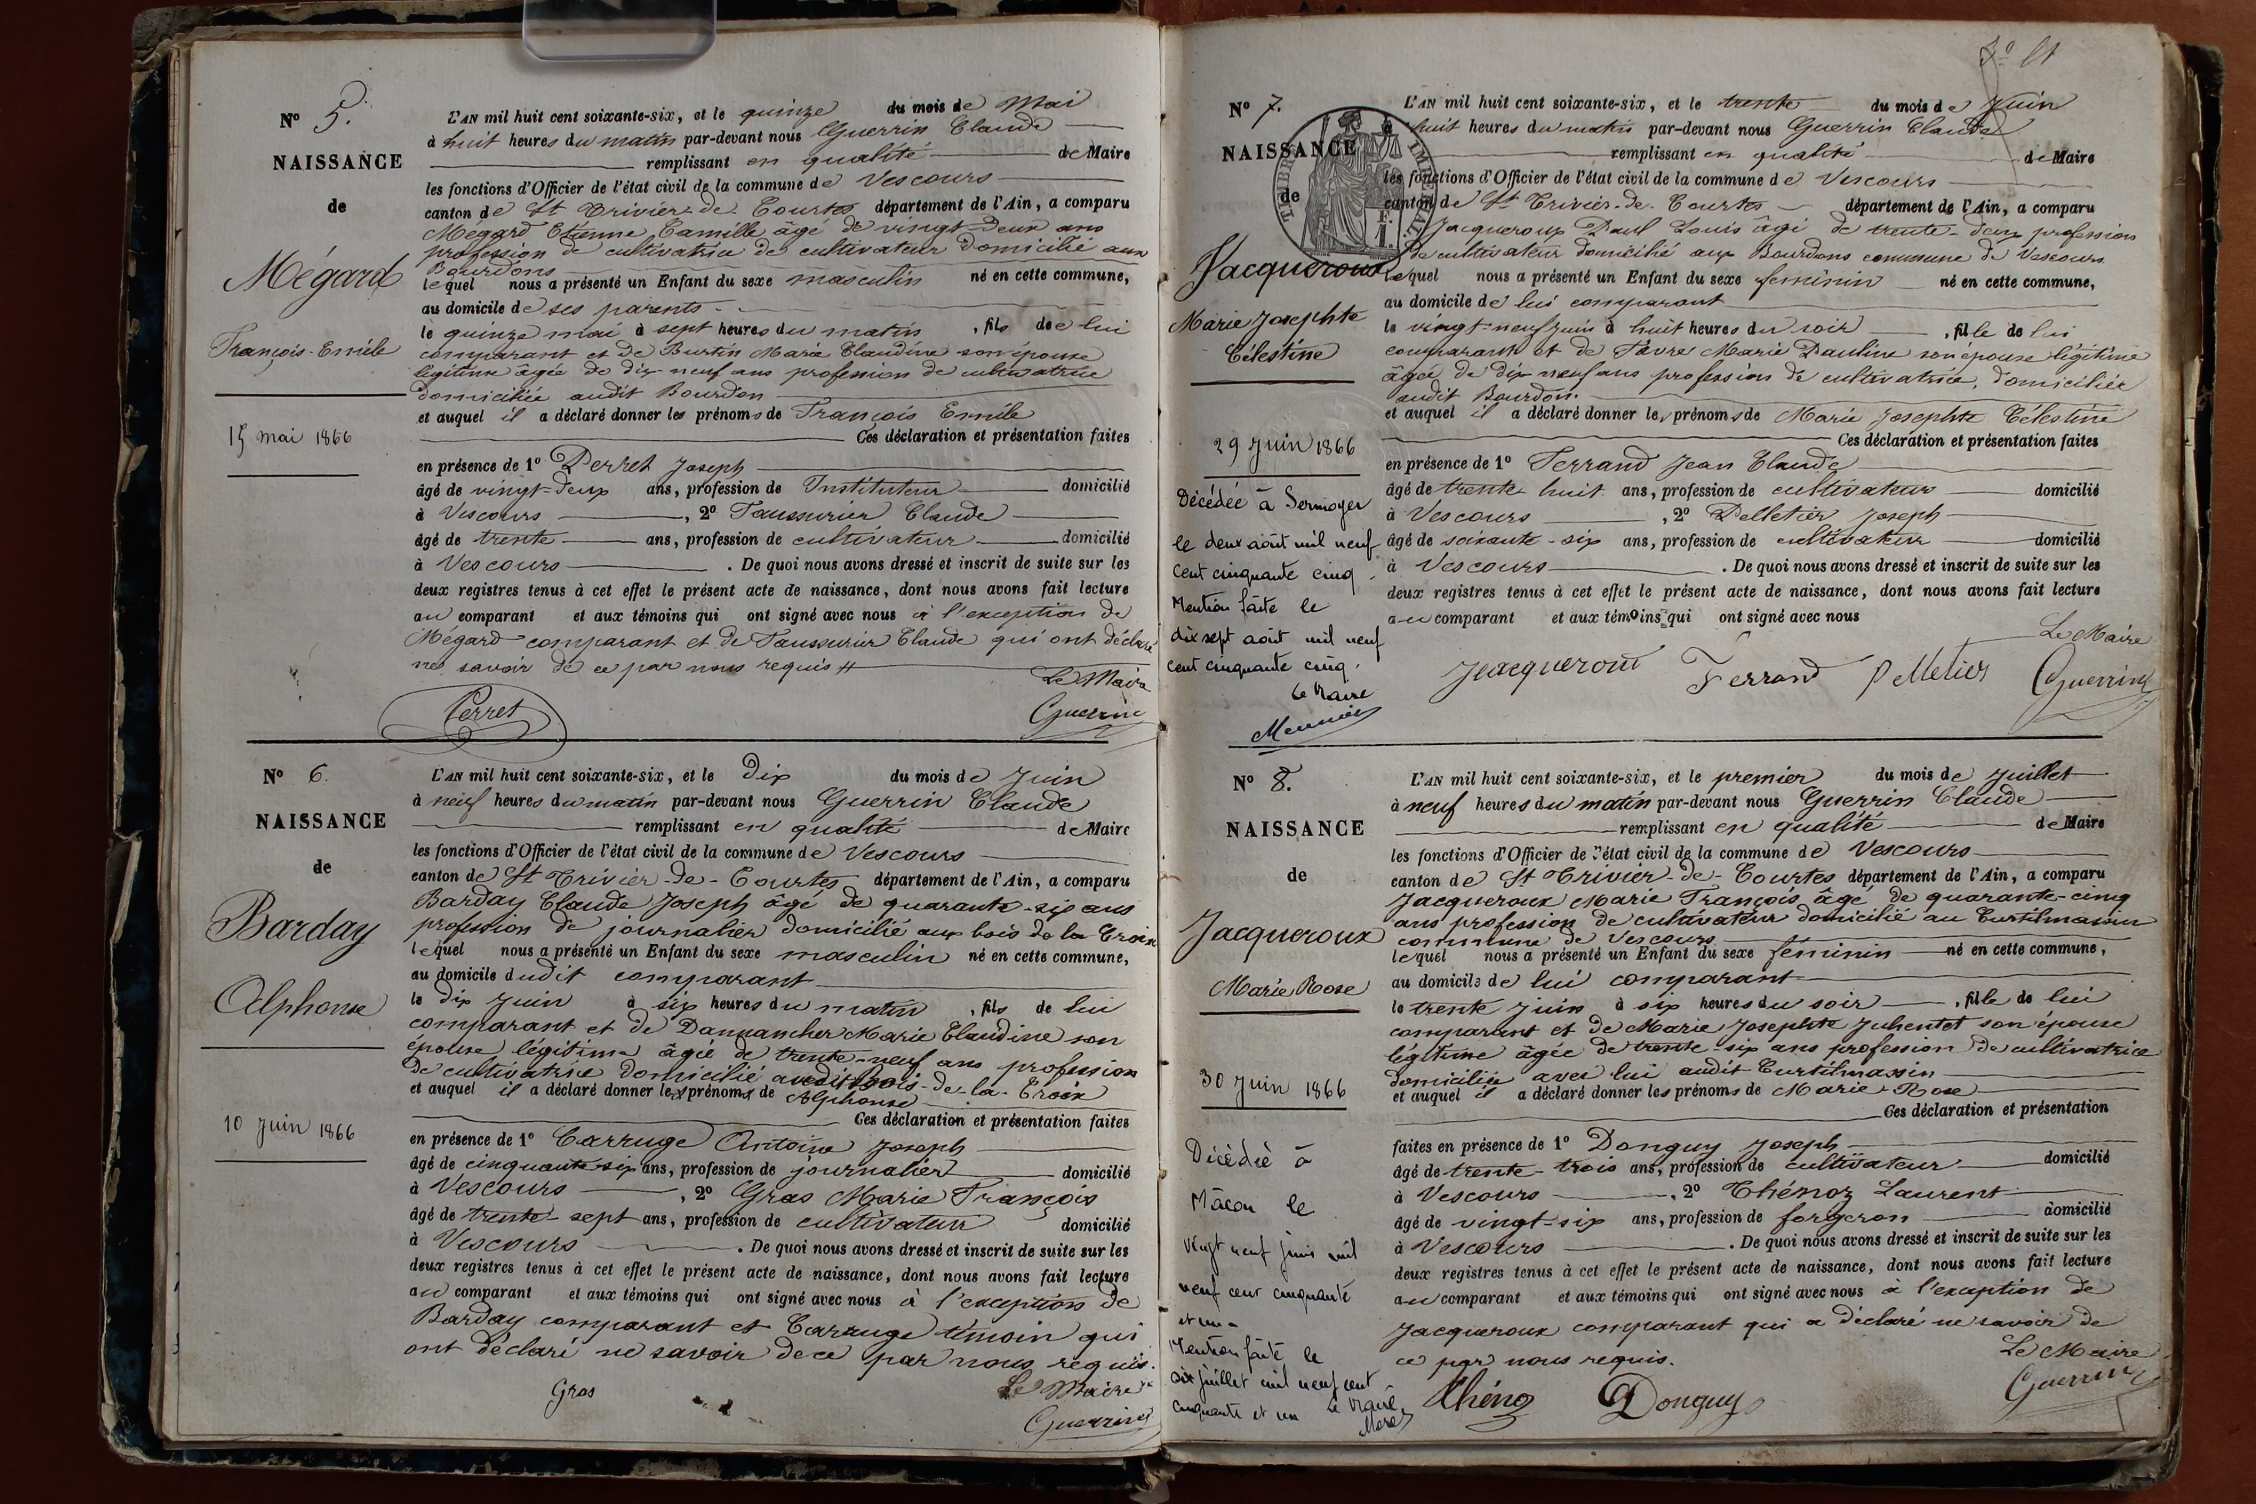 N° 5.
NAISSANCE
de
Mégard
François-Emile
15 mai 1866
L'AN mil huit cent soixante-six, et le quinze du mois de Mai
à huit heures du matin par-devant nous Guerrin Claude
remplissant en qualité de Maire
les fonctions d'Officier de l'état civil de la commune de Vescours
canton de St Trivier-de-Courtes département de l'Ain, a comparu
Mégard Etienne Camille âgé de vingt-deux ans
profession de cultivatrice de cultivateur domicilié aux
Bourdons
lequel nous a présenté un Enfant du sexe masculin né en cette commune,
au domicile de ses parents
le quinze mai à sept heures du matin, fils de lui
comparant et de Burtin Marie Claudine son épouse
légitime âgée de dix neuf ans profession de cultivatrice
domiciliée audit Bourdon
et auquel il a déclaré donner les prénoms de François Emile
Ces déclaration et présentation faites
en présence de 1° Perret Joseph
âgé de vingt-deux ans, profession de Instituteur domicilié
à Vescours, 2° Taussurier Claude
âgé de trente ans, profession de cultivateur domicilié
à Vescours. De quoi nous avons dressé et inscrit de suite sur les
deux registres tenus à cet effet le présent acte de naissance, dont nous avons fait lecture
au comparant et aux témoins qui ont signé avec nous à l'exception de
Mégard comparant et de Taussurier Claude qui ont déclaré
ne savoir de ce par nous requis
Le Maire
Perret Guerrin
N° 6.
NAISSANCE
de
Barday
Alphonse
10 Juin 1866
L'AN mil huit cent soixante-six, et le dix du mois de Juin
à neuf heures du matin par-devant nous Guerrin Claude
remplissant en qualité de Maire
les fonctions d'Officier de l'état civil de la commune de Vescours
canton de St Trivier-de-Courtes département de l'Ain, a comparu
Barday Claude Joseph âgé de quarante-six ans
profession de journalier domicilié aux bois de la Croix
lequel nous a présenté un Enfant du sexe masculin né en cette commune,
au domicile dudit comparant
le dix Juin à six heures du matin, fils de lui
comparant et de Dannancher Marie Claudine son
épouse légitime âgée de trente-neuf ans profession
de cultivatrice domicilié audit Bois-de-la-Croix
et auquel il a déclaré donner les prénoms de Alphonse
Ces déclaration et présentation faites
en présence de 1° Carruge Antoine Joseph
âgé de cinquante-six ans, profession de journalier domicilié
à Vescours, 2° Gras Marie François
âgé de trente-sept ans, profession de cultivateur domicilié
à Vescours. De quoi nous avons dressé et inscrit de suite sur les
deux registres tenus à cet effet le présent acte de naissance, dont nous avons fait lecture
au comparant et aux témoins qui ont signé avec nous à l'exception de
Barday comparant et Carruge témoin qui
ont déclaré ne savoir de ce par nous requis.
Le Maire
Gras Guerrin
N° 7.
NAISSANCE
de
Jacqueroux
Marie Josephte
Célestine
29 Juin 1866
Décédée à Sermoyer
le deux août mil neuf
cent cinquante cinq.
Mention faite le
dix sept août mil neuf
cent cinquante cinq.
Le Maire
Meunier
TIMBRE IMPERIAL
1 F.
L'AN mil huit cent soixante-six, et le trente du mois de Juin
à huit heures du matin par-devant nous Guerrin Claude
remplissant en qualité de Maire
les fonctions d'Officier de l'état civil de la commune de Vescours
canton de St Trivier-de-Courtes département de l'Ain, a comparu
Jacqueroux Paul Louis âgé de trente-deux profession
de cultivateur domicilié aux Bourdons commune de Vescours
lequel nous a présenté un Enfant du sexe féminin né en cette commune,
au domicile de lui comparant
le vingt-neuf juin à huit heures du soir, fille de lui
comparant et de Favre Marie Pauline son épouse légitime
âgée de dix neuf ans profession de cultivatrice, domiciliée
audit Bourdon.
et auquel il a déclaré donner les prénoms de Marie Josephte Célestine
Ces déclaration et présentation faites
en présence de 1° Ferrand Jean Claude
âgé de trente huit ans, profession de cultivateur domicilié
à Vescours, 2° Pelletier Joseph
âgé de soixante-six ans, profession de cultivateur domicilié
à Vescours. De quoi nous avons dressé et inscrit de suite sur les
deux registres tenus à cet effet le présent acte de naissance, dont nous avons fait lecture
au comparant et aux témoins qui ont signé avec nous
Le Maire
Jacqueroux Ferrand Pelletier Guerrin
N° 8.
NAISSANCE
de
Jacqueroux
Marie Rose
30 Juin 1866
Décédée à
Mâcon le
vingt neuf juin mil
neuf cent cinquante
et un
Mention faite le
six juillet mil neuf cent
cinquante et un Le Maire
L'AN mil huit cent soixante-six, et le premier du mois de Juillet
à neuf heures du matin par-devant nous Guerrin Claude
remplissant en qualité de Maire
les fonctions d'Officier de l'état civil de la commune de Vescours
canton de St Trivier-de-Courtes département de l'Ain, a comparu
Jacqueroux Marie François âgé de quarante-cinq
ans profession de cultivateur domicilié au Curtilmassin
commune de Vescours
lequel nous a présenté un Enfant du sexe féminin né en cette commune,
au domicile de lui comparant
le trente juin à six heures du soir, fille de lui
comparant et de Marie Josephte Juhentet son épouse
légitime âgée de trente-six ans profession de cultivatrice
domiciliée avec lui audit Curtilmassin
et auquel il a déclaré donner les prénoms de Marie-Rose
Ces déclaration et présentation
faites en présence de 1° Donguy Joseph
âgé de trente-trois ans, profession de cultivateur domicilié
à Vescours, 2° Thénoz Laurent
âgé de vingt-six ans, profession de forgeron domicilié
à Vescours. De quoi nous avons dressé et inscrit de suite sur les
deux registres tenus à cet effet le présent acte de naissance, dont nous avons fait lecture
au comparant et aux témoins qui ont signé avec nous à l'exception de
Jacqueroux comparant qui a déclaré ne savoir de
ce par nous requis.
Le Maire
Thénoz Donguy Guerrin